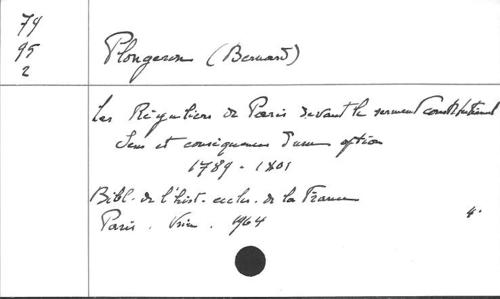 79
95
2
Plongeron (Bernard)
Les Réguliers de Paris devant le serment constitutionnel
Sens et conséquences d'une option
1789 - 1801
Bibl. de l'hist. eccles. de la France
Paris. Vrin. 1964
4°